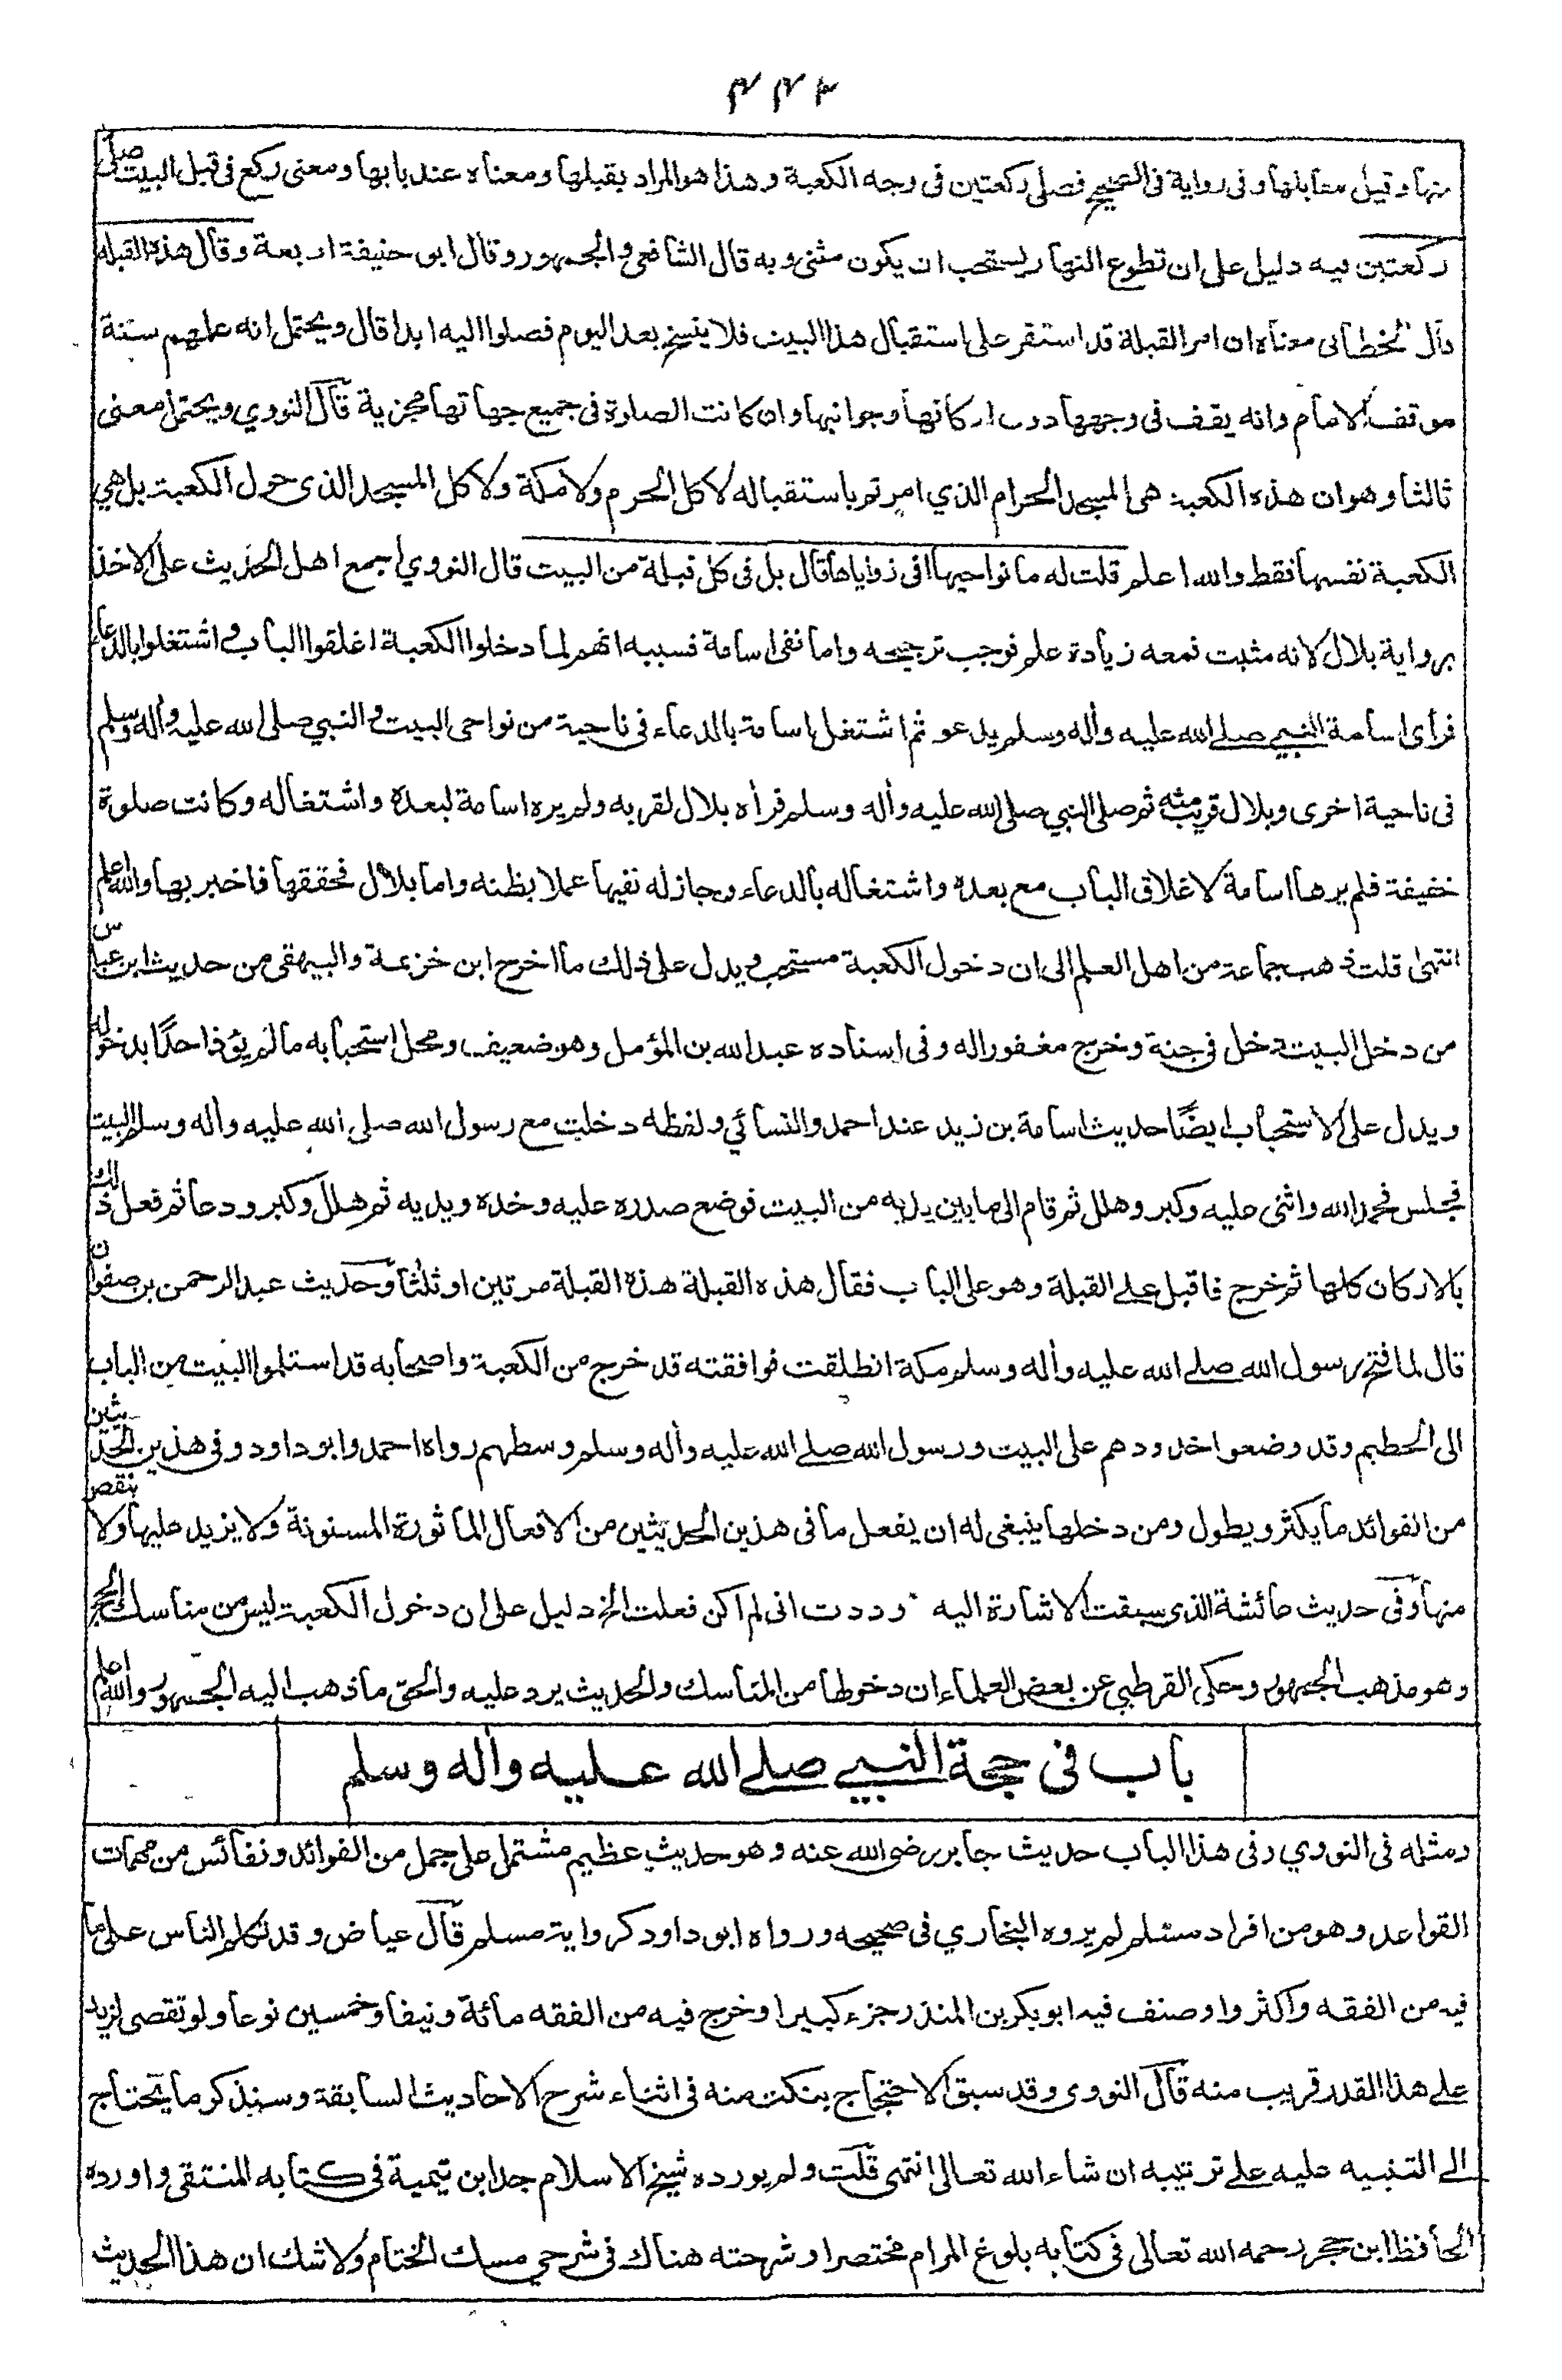 ٤٤٢
منها وقيل مقابلها وفى رواية فى الصحيح فصلى ركعتين فى وجه الكعبة وهذا هو المراد بقبلها ومعناه عند بابها ومعنى ركع فى قبل البيت صلى
ركعتين فيه دليل على ان تطوع النهار يستحب ان يكون مثنى وبه قال الشافعي والجمهور وقال ابو حنيفة اربعة وقال هذه القبلة
قال الخطابى معناه ان امر القبلة قد استقر على استقبال هذا البيت فلا ينسخ بعد اليوم فصلوا اليه ابدا قال ويحتمل انه علمهم سنة
موقف الامام وانه يقف فى وجهها دون اركانها وجوانبها وان كانت الصلوة فى جميع جهاتها مجزية قال النووي ويحتمل معنى
ثالثا وهو ان هذه الكعبة هى المسجد الحرام الذي امرتم باستقباله لا كل الحرم ولا مكة ولا كل المسجد الذى حول الكعبة بل هي
الكعبة نفسها فقط والله اعلم قلت له ما نواحيها افى زواياها قال بل فى كل قبلة من البيت قال النووي اجمع اهل الحديث على الاخذ
برواية بلال لانه مثبت فمعه زيادة علم فوجب ترجيحه واما نفى اسامة فسببه انهم لما دخلوا الكعبة اغلقوا الباب واشتغلوا بالدعاء
فرأى اسامة النبي صلى الله عليه وأله وسلم يدعو ثم اشتغل اسامة بالدعاء فى ناحية من نواحى البيت والنبي صلى الله عليه وأله وسلم
فى ناحية اخرى وبلال قريب منه ثم صلى النبي صلى الله عليه وأله وسلم فرأه بلال لقربه ولم يره اسامة لبعده واشتغاله وكانت صلوة
خفيفة فلم يرها اسامة لاغلاق الباب مع بعده واشتغاله بالدعاء وجاز له نفيها عملا بظنه واما بلال فحققها فاخبر بها والله اعلم
انتهى قلت ذهب جماعة من اهل العلم الى ان دخول الكعبة مستحب ويدل على ذلك ما اخرج ابن خزيمة والبيهقى من حديث ابن عباس
من دخل البيت دخل فى جنة وخرج مغفورا له وفى اسناده عبد الله بن المؤمل وهو ضعيف ومحل استحبابه ما لم يؤذ احدًا بدخوله
ويدل على الاستحباب ايضًا حديث اسامة بن زيد عند احمد والنسائي ولفظه دخلت مع رسول الله صلى الله عليه وأله وسلم البيت
فجلس فحمد الله واثنى عليه وكبر وهلل ثم قام الى ما بين يديه من البيت فوضع صدره عليه وخده ويديه ثم هلل وكبر ودعا ثم فعل ذلك
بالاركان كلها ثم خرج فاقبل على القبلة وهو على الباب فقال هذه القبلة هذه القبلة مرتين او ثلثا وحديث عبد الرحمن بن صفوان
قال لما فتح رسول الله صلى الله عليه وأله وسلم مكة انطلقت فوافقته قد خرج من الكعبة واصحابه قد استلموا البيت من الباب
الى الحطيم وقد وضعوا خدودهم على البيت ورسول الله صلى الله عليه وأله وسلم وسطهم رواه احمد وابو داود وفى هذين الحديثين
من الفوائد ما يكثر ويطول ومن دخلها ينبغى له ان يفعل ما فى هذين الحديثين من الافعال المأثورة المسنونة ولا يزيد عليها ولا ينقص
منها وفى حديث عائشة الذى سبقت الاشارة اليه وددت انى لم اكن فعلت الخ دليل على ان دخول الكعبة ليس من مناسك الحج
وهو مذهب الجمهور وحكى القرطبي عن بعض العلماء ان دخولها من المناسك والحديث يرد عليه والحق ما ذهب اليه الجمهور والله اعلم
باب فى حجة النبي صلى الله عليه وأله وسلم
ومثله فى النووي وفى هذا الباب حديث جابر رضى الله عنه وهو حديث عظيم مشتمل على جمل من الفوائد ونفائس من مهمات
القواعد وهو من افراد مسلم لم يروه البخاري فى صحيحه ورواه ابو داود كرواية مسلم قال عياض وقد تكلم الناس على ما
فيه من الفقه واكثروا وصنف فيه ابو بكر بن المنذر جزء كبيرا وخرج فيه من الفقه مائة ونيفا وخمسين نوعا ولو تقصى لزيد
على هذا القدر قريب منه قال النووى وقد سبق الاحتجاج بنكت منه فى اثناء شرح الاحاديث السابقة وسنذكر ما يحتاج
الى التنبيه عليه على ترتيبه ان شاء الله تعالى انتهى قلت ولم يورده شيخ الاسلام جد ابن تيمية فى كتابه المنتقى واورده
الحافظ ابن حجر رحمه الله تعالى فى كتابه بلوغ المرام مختصرا وشرحته هناك فى شرحي مسك الختام ولا شك ان هذا الحديث